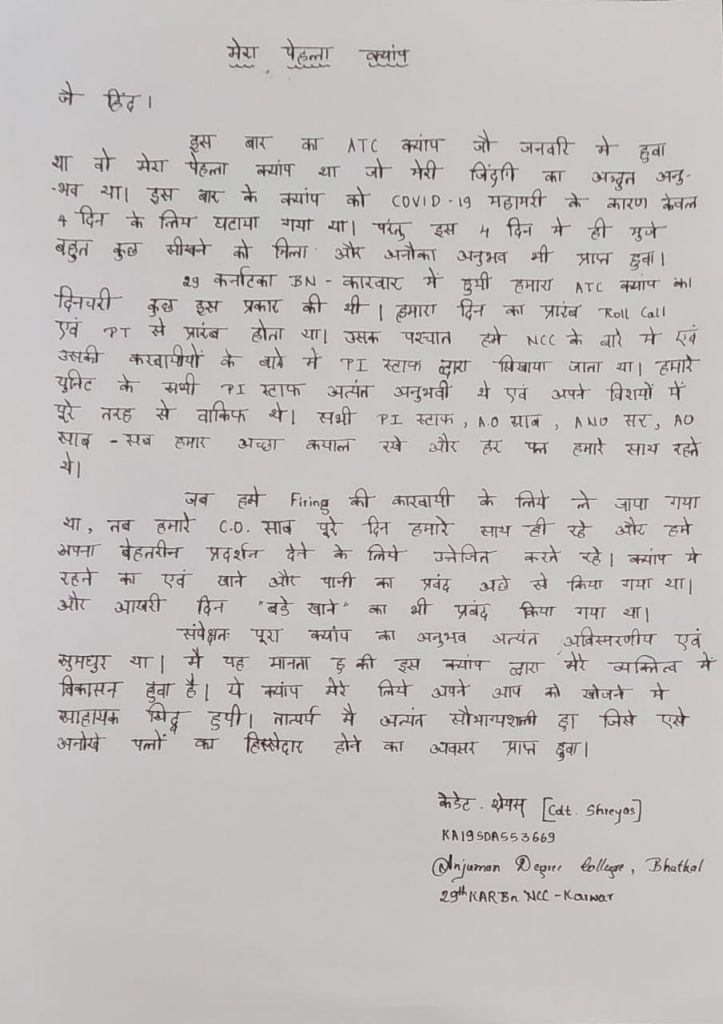 मेरा पेहला क्यांप
जै हिंद।
इस बार का ATC क्यांप जौ जनवरि मे हुवा
था वो मेरा पेहला क्यांप था जो मेरी जिंदगि का अद्भुत अनु-
-भव था। इस बार के क्यांप को COVID-19 महामरी के कारण केवल
4 दिन के लिय घटाया गया था। परंतु इस 4 दिन मे ही मुजे
बहुत कुछ सीखने को मिला और अनौका अनुभव भी प्राप्त हुवा।
29 कर्नाटका BN - कारवार में हुयी हमारा ATC क्यांप का
दिनचरी कुछ इस प्रकार की थी। हमारा दिन का प्रारंब Roll Call
एवं PT से प्रारंब होता था। उसक पश्चात हमे NCC के बारे मे एवं
उसकी करवायीयों के बारे में PI स्टाफ द्वारा सिखाया जाता था। हमारे
युनिट के सभी PI स्टाफ अत्यंत अनुभवी थे एवं अपने विशयों में
पूरे तरह से वाकिफ थे। सभी PI स्टाफ, A.O साब, ANO सर, AO
साब - सब हमार अच्छा कयाल रखे और हर पल हमारे साथ रहते
थे।
जब हमे Firing की कारवायी के लिये ले जाया गया
था, तब हमारे C.O. साब पूरे दिन हमारे साथ ही रहे और हमे
अपना बेहतरीन प्रदर्शन देने के लिये उत्तेजित करते रहे। क्यांप मे
रहने का एवं खाने और पानी का प्रबंद अछे से किया गया था।
और आखरी दिन "बडे खाने" का भी प्रबंद किया गया था।
संपेक्षतः पूरा क्यांप का अनुभव अत्यंत अविस्मरणीय एवं
सुमधुर था। मै यह मानता हु की इस क्यांप द्वारा मेरे व्यक्तित्व में
विकासन हुवा है। ये क्यांप मेरे लिये अपने आप को खोजने मे
साहायक सिद्ध हुयी। तात्पर्य मै अत्यंत सौभाग्यशाली हु जिसे एसे
अनोखे पलों का हिस्सेदार होने का अवसर प्राप्त हुवा।
केडेट. श्रेयस् [Cdt. Shreyas]
KA19SDA553669
@Anjuman Degree College, Bhatkal
29th KAR Bn NCC - Karwar